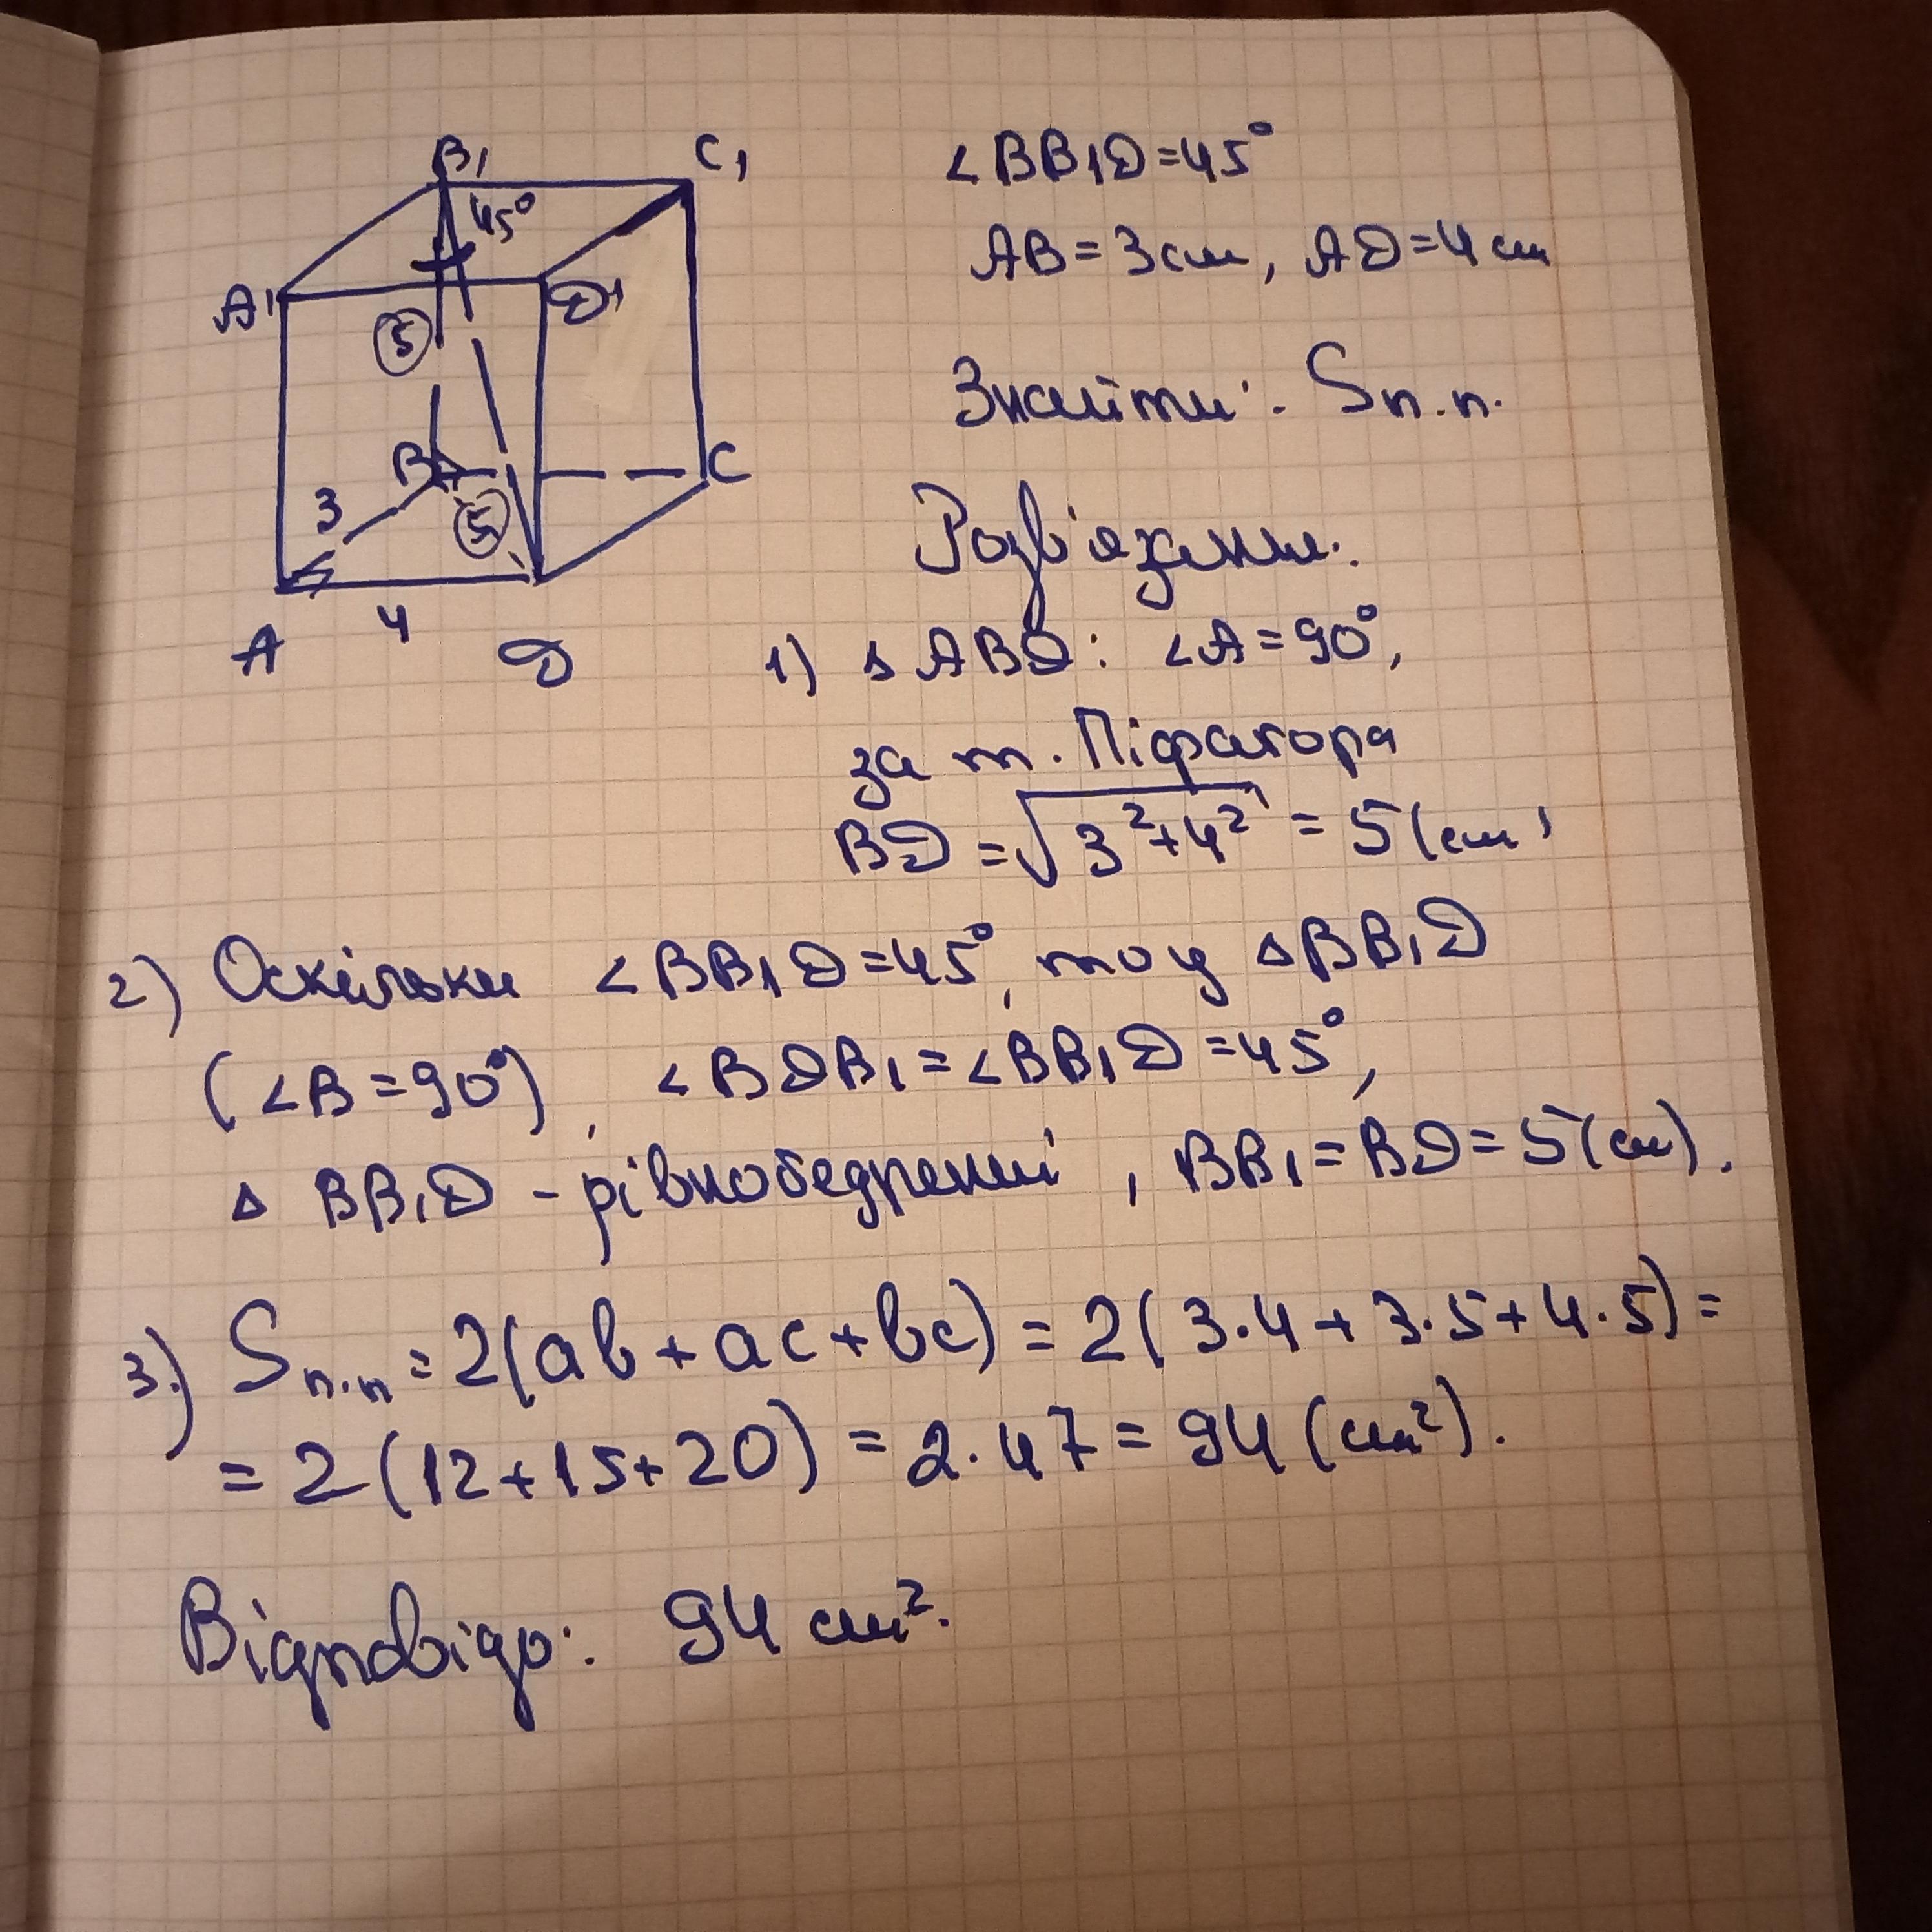 B₁ C₁
45°
A₁ D₁
5
B C
3 5
4
A D
∠BB₁D=45°
AB=3см, AD=4см
Знайти: Sп.п.
Розв'язання.
1) △ABD: ∠A=90°,
за т. Піфагора
BD=√3²+4² = 5(см)
2) Оскільки ∠BB₁D=45°, то у △BB₁D
(∠B=90°), ∠BDB₁=∠BB₁D=45°,
△ BB₁D - рівнобедрений, BB₁=BD=5(см).
3.) Sп.п=2(ab+ac+bc)=2(3·4+3·5+4·5)=
=2(12+15+20)=2·47=94(см²).
Відповідь: 94 см².